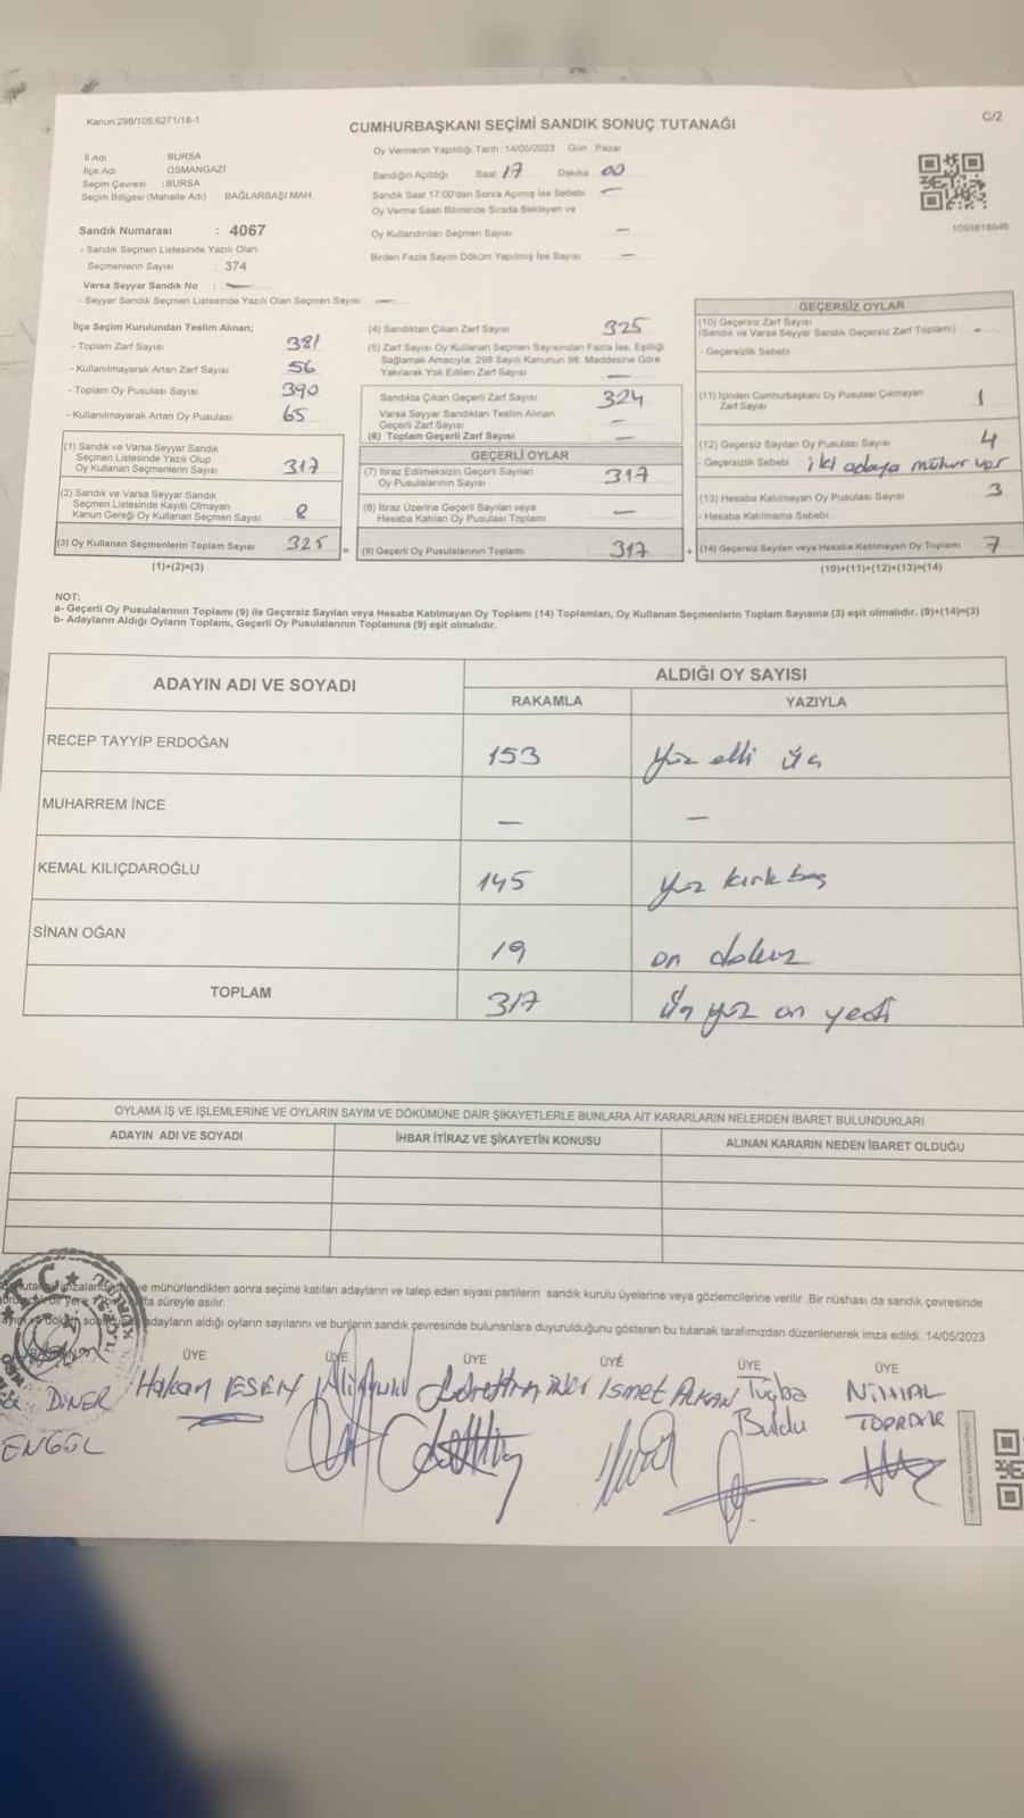 Kanun:298/105,6271/18-1
C/2
CUMHURBAŞKANI SEÇİMİ SANDIK SONUÇ TUTANAĞI
İl Adı BURSA
İlçe Adı OSMANGAZİ
Seçim Çevresi :BURSA
Seçim Bölgesi (Mahalle Adı) BAĞLARBAŞI MAH.
Sandık Numarası : 4067
- Sandık Seçmen Listesinde Yazılı Olan
Seçmenlerin Sayısı : 374
Varsa Seyyar Sandık No : —
- Seyyar Sandık Seçmen Listesinde Yazılı Olan Seçmen Sayısı —
Oy Vermenin Yapıldığı Tarih :14/05/2023 Gün :Pazar
Sandığın Açıldığı Saat 17 Dakika 00
Sandık Saat 17:00'dan Sonra Açılmış İse Sebebi —
Oy Verme Saati Bitiminde Sırada Bekleyen ve
Oy Kullandırılan Seçmen Sayısı —
Birden Fazla Sayım Döküm Yapılmış İse Sayısı —
İlçe Seçim Kurulundan Teslim Alınan;
- Toplam Zarf Sayısı 381
- Kullanılmayarak Artan Zarf Sayısı 56
- Toplam Oy Pusulası Sayısı 390
- Kullanılmayarak Artan Oy Pusulası 65
(1) Sandık ve Varsa Seyyar Sandık
Seçmen Listesinde Yazılı Olup
Oy Kullanan Seçmenlerin Sayısı 317
(2) Sandık ve Varsa Seyyar Sandık
Seçmen Listesinde Kayıtlı Olmayan
Kanun Gereği Oy Kullanan Seçmen Sayısı 8
(3) Oy Kullanan Seçmenlerin Toplam Sayısı 325
(1)+(2)=(3)
(4) Sandıktan Çıkan Zarf Sayısı 325
(5) Zarf Sayısı Oy Kullanan Seçmen Sayısından Fazla İse, Eşitliği
Sağlamak Amacıyla, 298 Sayılı Kanunun 98. Maddesine Göre
Yakılarak Yok Edilen Zarf Sayısı —
Sandıkta Çıkan Geçerli Zarf Sayısı 324
Varsa Seyyar Sandıktan Teslim Alınan
Geçerli Zarf Sayısı —
(6) Toplam Geçerli Zarf Sayısı —
GEÇERLİ OYLAR
(7) İtiraz Edilmeksizin Geçerli Sayılan
Oy Pusulalarının Sayısı 317
(8) İtiraz Üzerine Geçerli Sayılan veya
Hesaba Katılan Oy Pusulası Toplamı —
= (9) Geçerli Oy Pusulalarının Toplamı 317
GEÇERSİZ OYLAR
(10) Geçersiz Zarf Sayısı
(Sandık ve Varsa Seyyar Sandık Geçersiz Zarf Toplamı) -
- Geçersizlik Sebebi
(11) İçinden Cumhurbaşkanı Oy Pusulası Çıkmayan
Zarf Sayısı 1
(12) Geçersiz Sayılan Oy Pusulası Sayısı 4
- Geçersizlik Sebebi iki adaya mühür var
(13) Hesaba Katılmayan Oy Pusulası Sayısı 3
- Hesaba Katılmama Sebebi
+ (14) Geçersiz Sayılan veya Hesaba Katılmayan Oy Toplamı 7
(10)+(11)+(12)+(13)=(14)
NOT:
a- Geçerli Oy Pusulalarının Toplamı (9) ile Geçersiz Sayılan veya Hesaba Katılmayan Oy Toplamı (14) Toplamları, Oy Kullanan Seçmenlerin Toplam Sayısına (3) eşit olmalıdır. (9)+(14)=(3)
b- Adayların Aldığı Oyların Toplamı, Geçerli Oy Pusulalarının Toplamına (9) eşit olmalıdır.
ADAYIN ADI VE SOYADI
ALDIĞI OY SAYISI
RAKAMLA YAZIYLA
RECEP TAYYİP ERDOĞAN 153 yüz elli üç
MUHARREM İNCE — —
KEMAL KILIÇDAROĞLU 145 yüz kırk beş
SİNAN OĞAN 19 on dokuz
TOPLAM 317 üç yüz on yedi
OYLAMA İŞ VE İŞLEMLERİNE VE OYLARIN SAYIM VE DÖKÜMÜNE DAİR ŞİKAYETLERLE BUNLARA AİT KARARLARIN NELERDEN İBARET BULUNDUKLARI
ADAYIN ADI VE SOYADI İHBAR İTİRAZ VE ŞİKAYETİN KONUSU ALINAN KARARIN NEDEN İBARET OLDUĞU
ve mühürlendikten sonra seçime katılan adayların ve talep eden siyasi partilerin sandık kurulu üyelerine veya gözlemcilerine verilir. Bir nüshası da sandık çevresinde
süreyle asılır.
adayların aldığı oyların sayılarını ve bunların sandık çevresinde bulunanlara duyurulduğunu gösteren bu tutanak tarafımızdan düzenlenerek imza edildi. 14/05/2023
T.C.
ÜYE ÜYE ÜYE ÜYE ÜYE ÜYE
DİNER Hakan ESEN İsmet ALKAN Tuğba NİHAL
ENGÜL Buldu TOPRAK